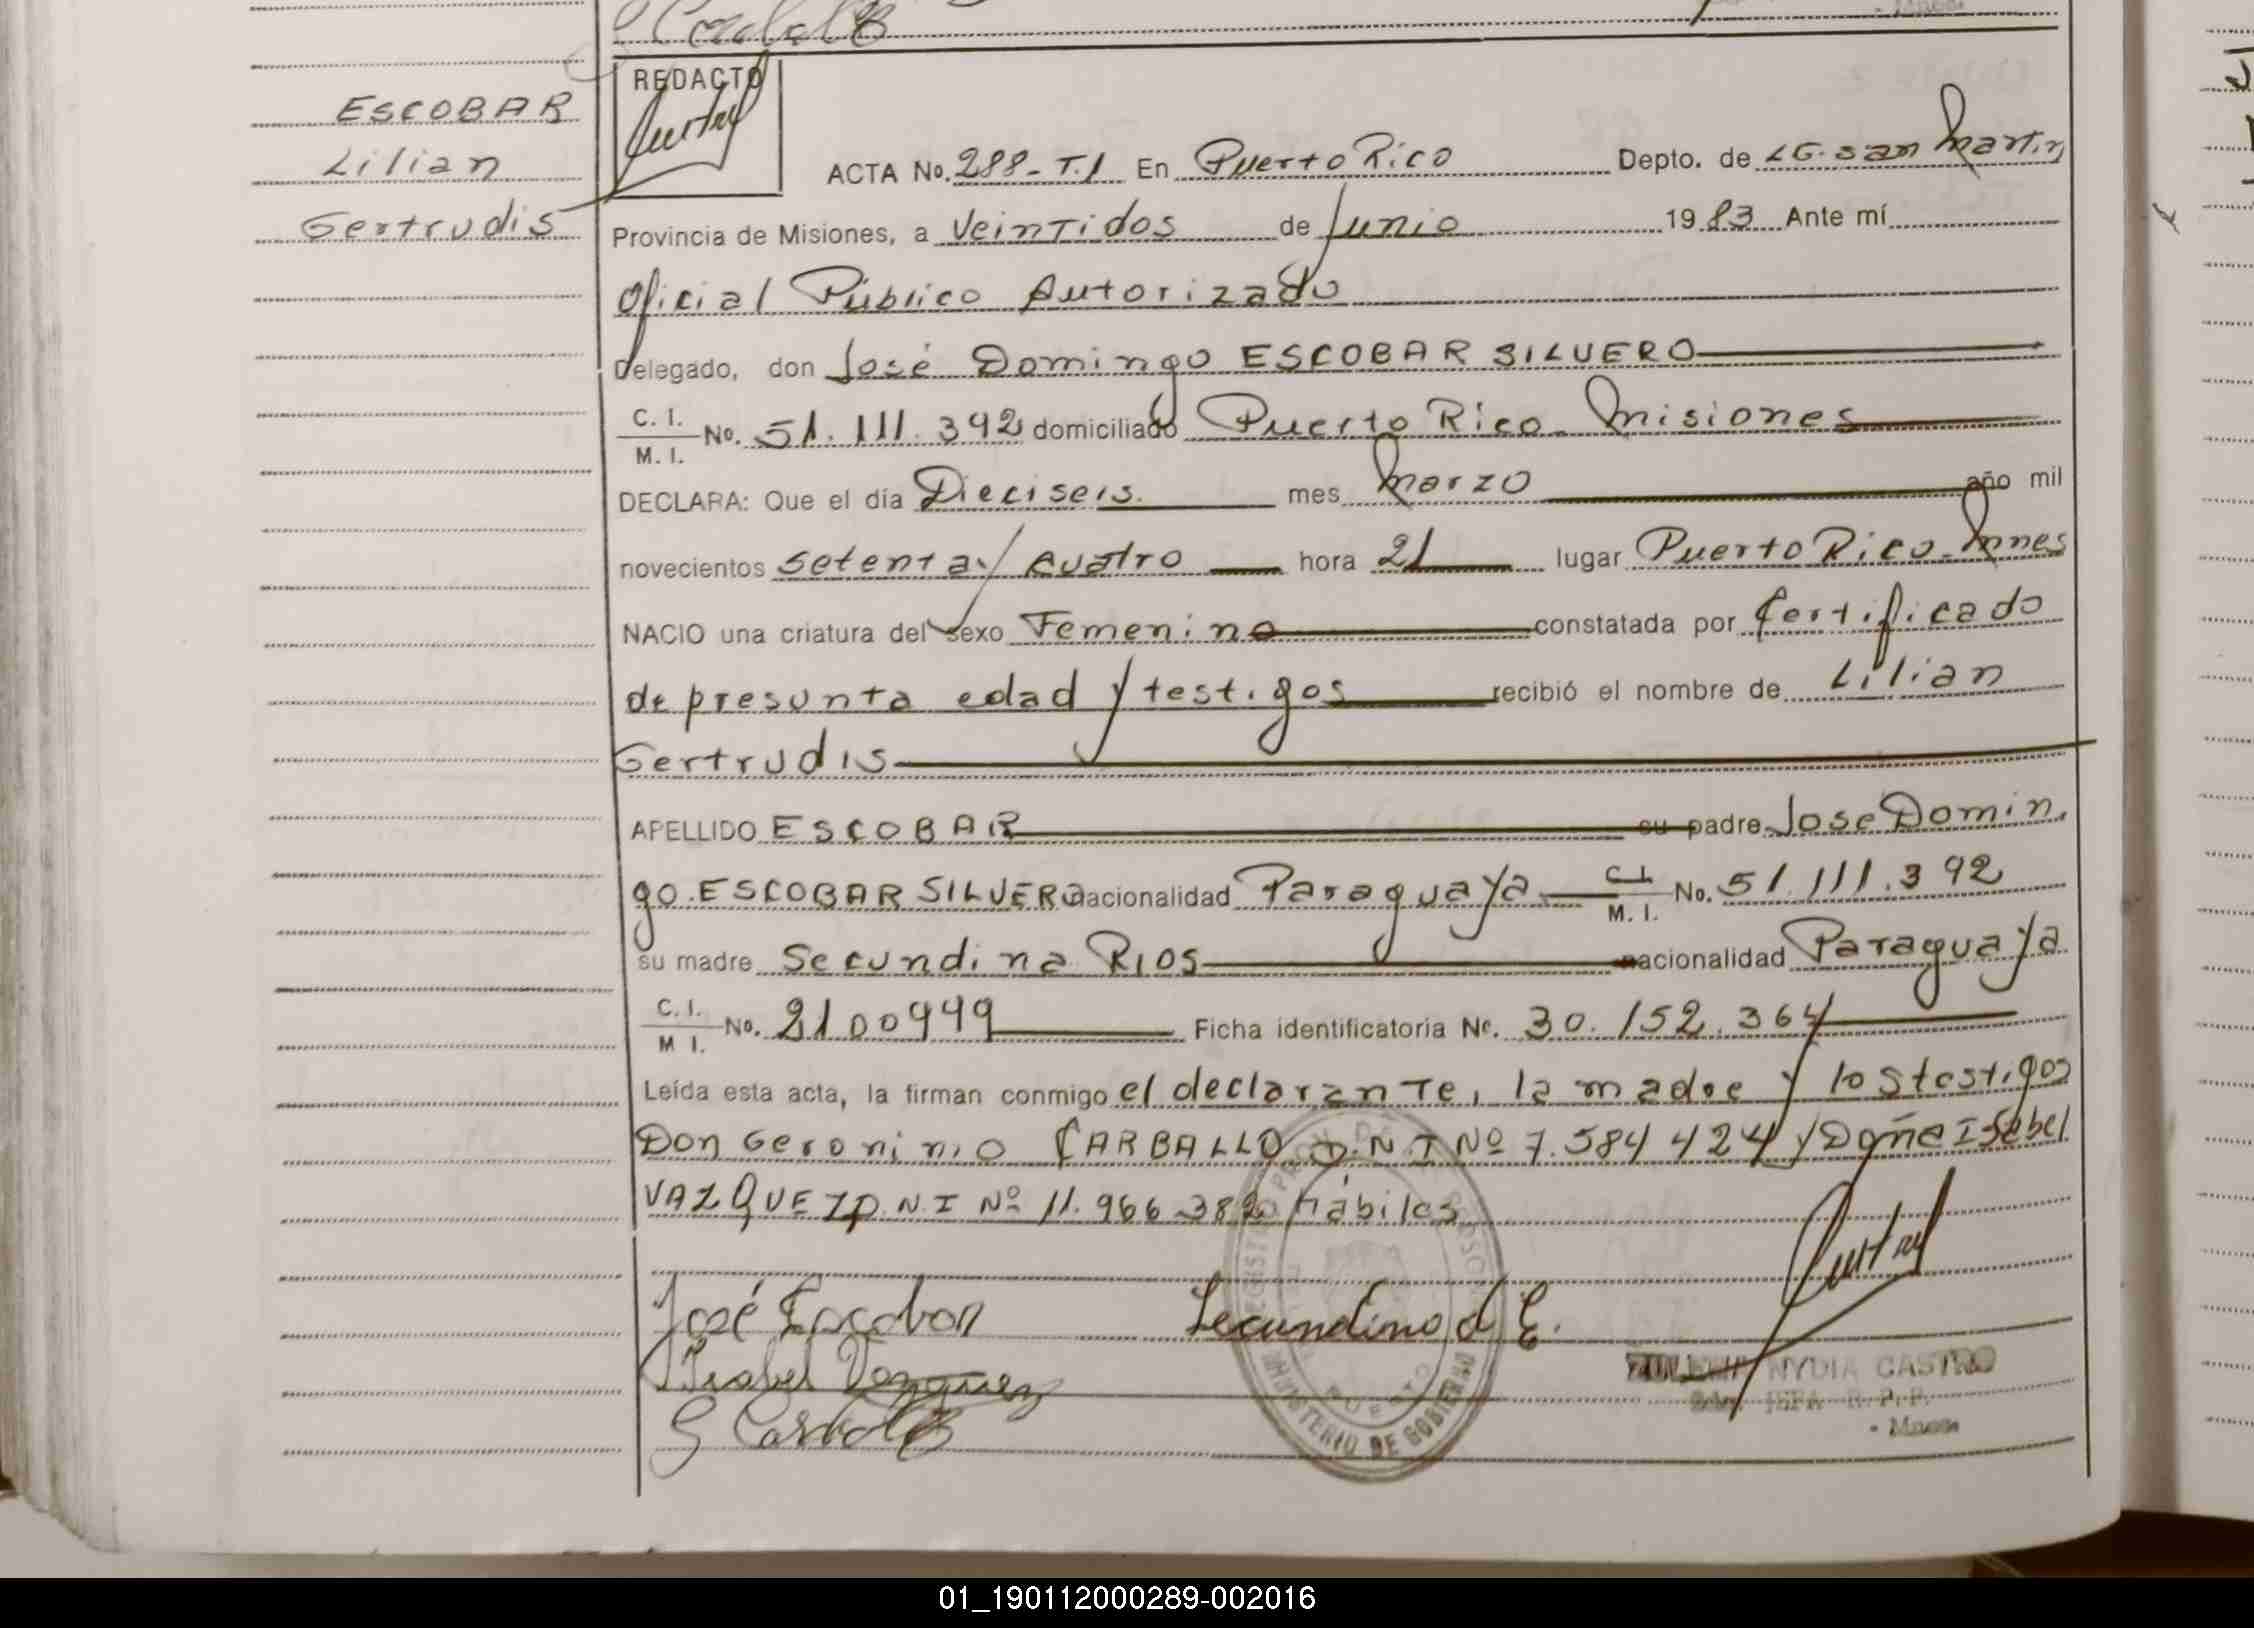 ESCOBAR
Lilian
Gertrudis
REDACTO
ACTA No. 288-T.I En Puerto Rico Depto. de LG. San Martin
Provincia de Misiones, a Veintidos de Junio 1983 Ante mí
Oficial Público Autorizado
Delegado, don José Domingo ESCOBAR SILVERO
C. I.
M. I. No. 51.111.392 domiciliado Puerto Rico - Misiones
DECLARA: Que el día Dieciseis mes Marzo año mil
novecientos setenta y cuatro hora 21 lugar Puerto Rico - Mnes
NACIO una criatura del sexo Femenino constatada por Certificado
de presunta edad y testigos recibió el nombre de Lilian
Gertrudis
APELLIDO ESCOBAR su padre Jose Domin
go. ESCOBAR SILVERO nacionalidad Paraguaya C. I. M. I. No. 51.111.392
su madre Secundina RIOS nacionalidad Paraguaya
C. I.
M I. No. 2100999 Ficha identificatoria No. 30.152.364
Leída esta acta, la firman conmigo el declarante, la madre y los testigos
Don Geronimo CARBALLO D.N.I Nº 7.584 424 y Doña Isabel
VAZQUEZ D.N.I Nº 11.966.382 Hábiles
José Escobar Secundino d E.
Isabel Vazquez
NYDIA CASTRO
MINISTERIO DE GOBIERNO
01_190112000289-002016